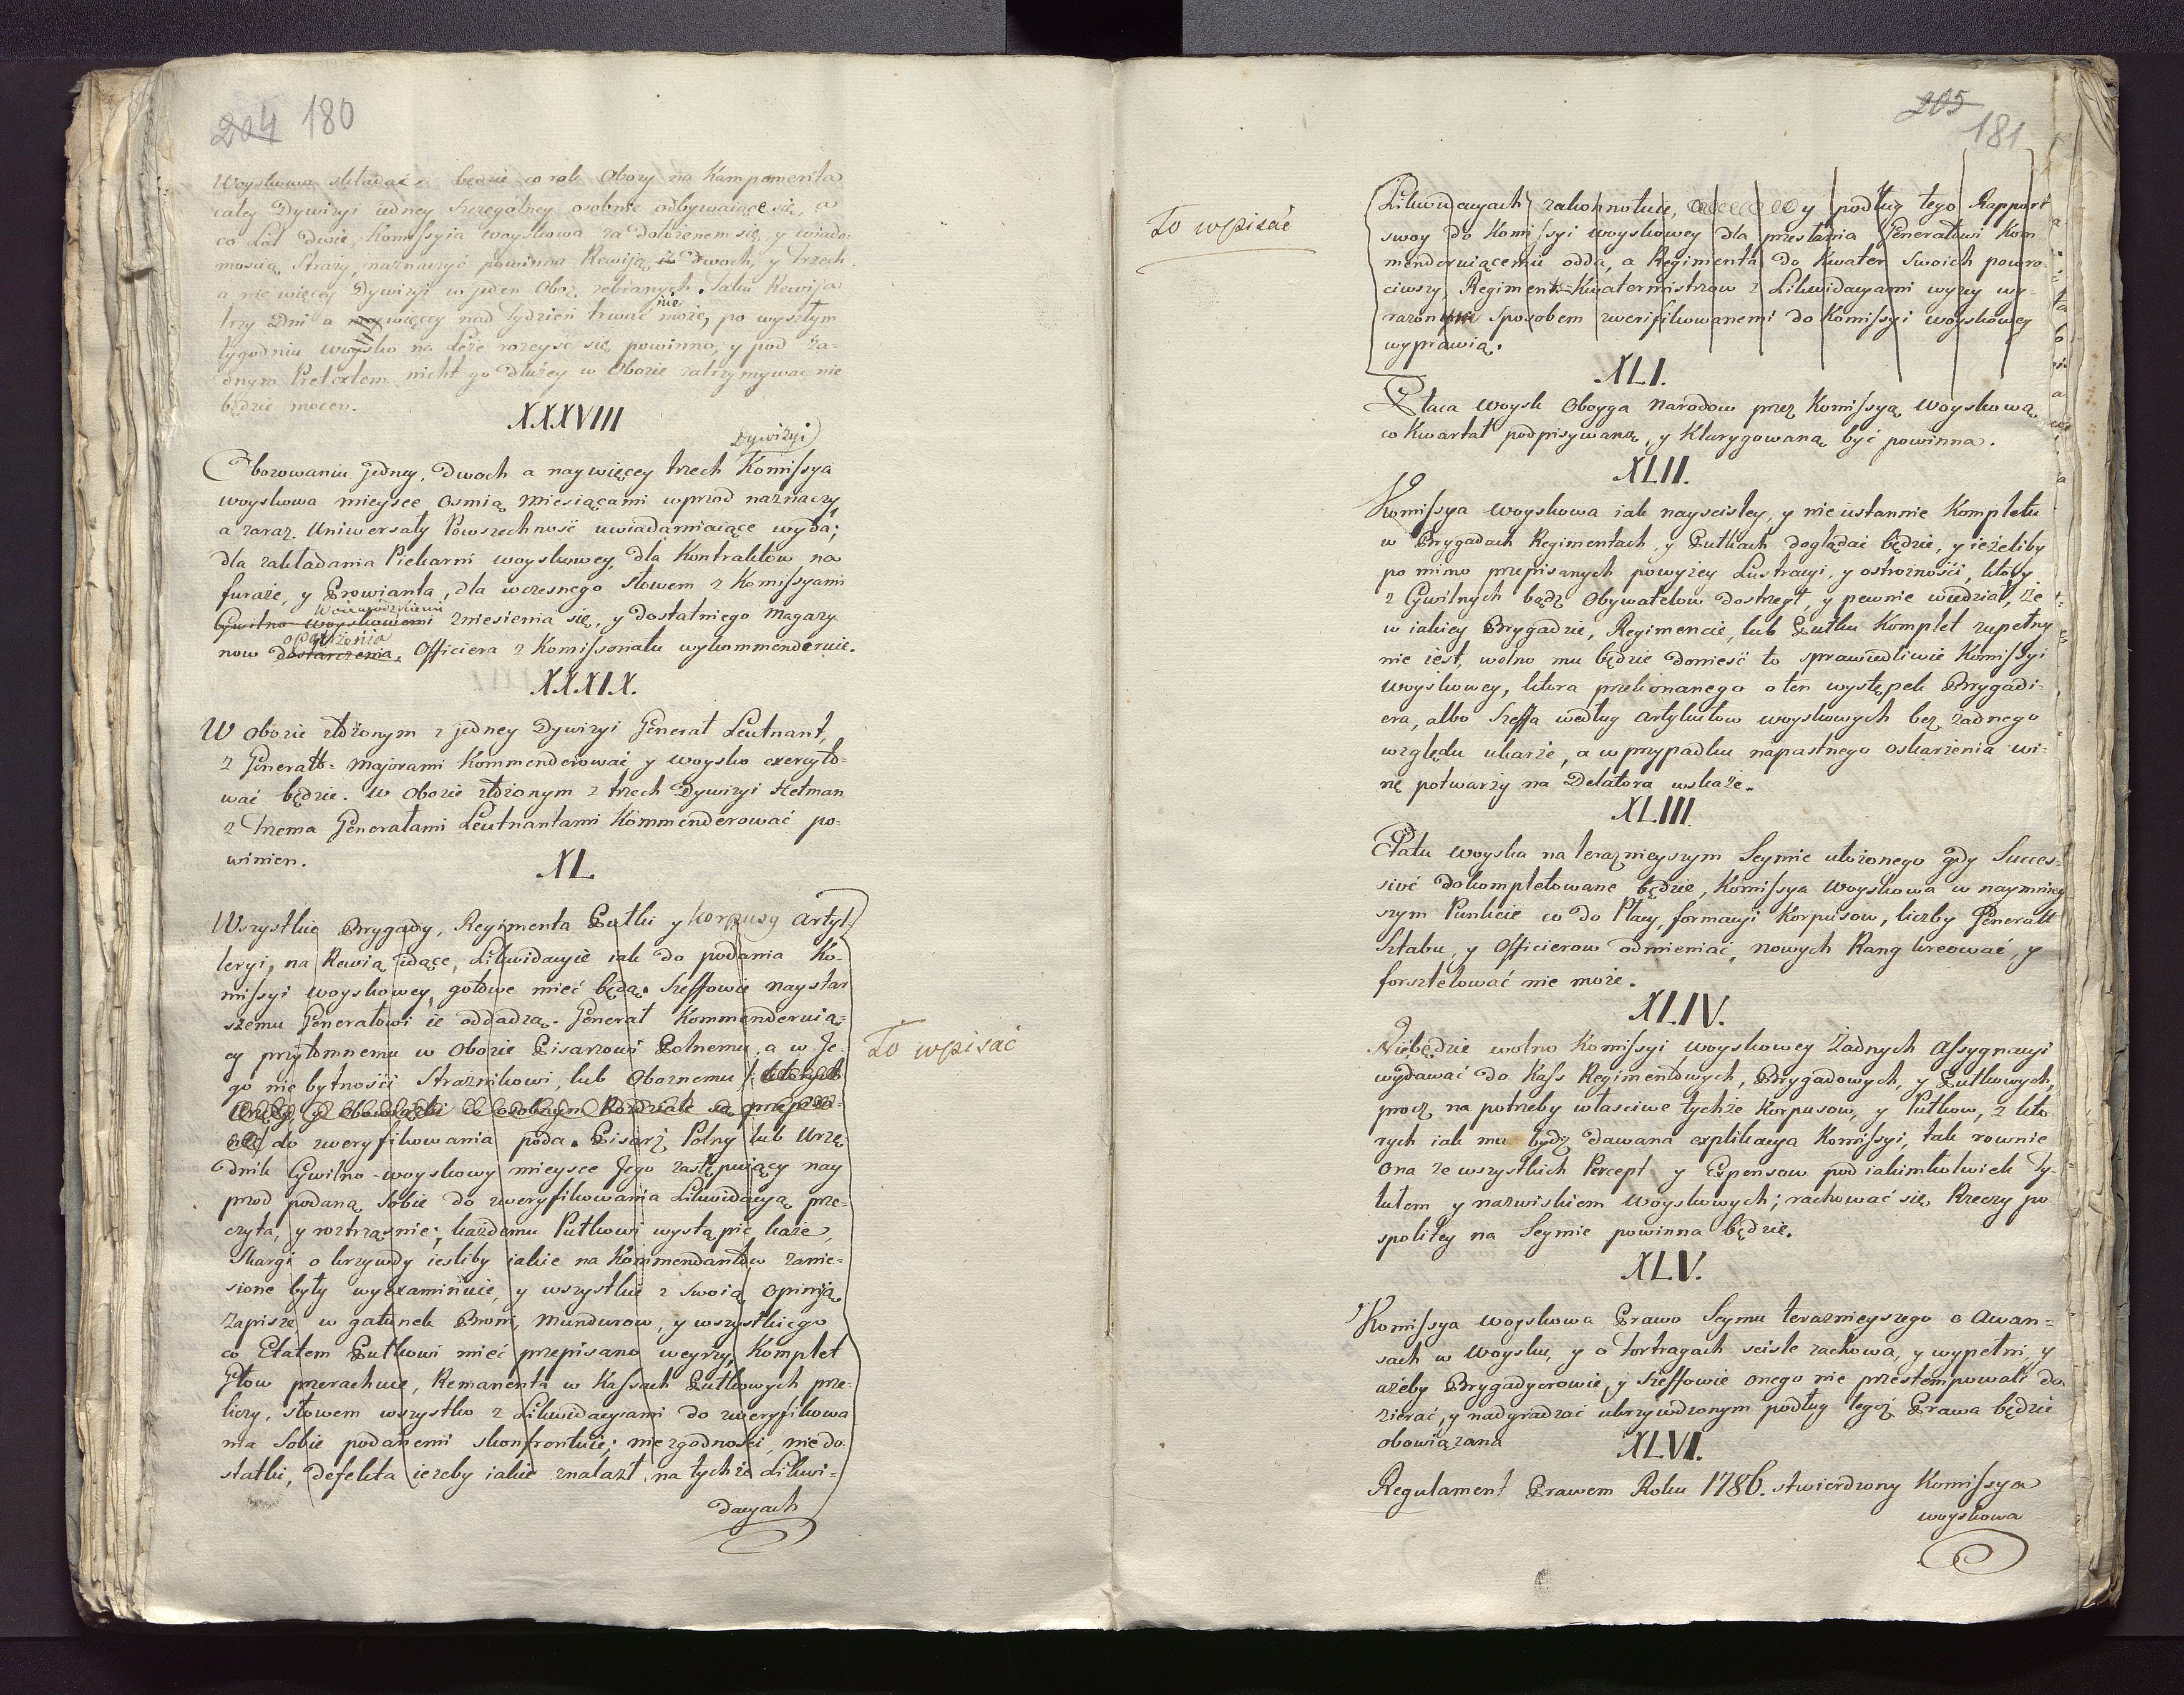 204 180
Woyskowa składać będzie co rok Obozy na Kampamenta
całey Dywizyi iedney szczegolney osobnie odbywaiące się, a
co Lat dwie, Komissyia woyskowa za dołożenem się, y wiado-
mością Straży, naznaczyć powinna Rewiją z Dwoch, y Trzech
a nie więcey Dywizyi w jeden Oboz zebranych. Taka Rewija
trzy Dni a naywięcey nad tydzień trwać nie może, po wyszłym
tygodniu woysko na Leże rozeyść się powinno, y pod ża-
dnym Pretextem nicht go dłużey w Obozie zatrzymywać nie
będzie mocen.
XXXVIII
Dywizyi
Obozowaniu jedney, dwoch a naywięcey trzech Komissya
woyskowa mieysce osmią miesiącami wprzod naznaczy,
a zaraz Uniwersały Powszechność uwiadamiaiące wyda;
dla zakładania Piekarni woyskowey, dla Kontraktow na
furaże, y Prowianta, dla wczesnego słowem z Komissyami
Woiewodzkiemi
Cywilno-woyskowemi zniesienia się, y dostatniego Magazy
opatrzenia
now dostarczenia, Officiera z Komissoriatu wykommenderuie.
XXXIX.
W obozie złożonym z jedney Dywizyi Generał Leutnant,
z Generało-Majorami Kommenderować y woysko exercyto-
wać będzie. W Obozie złożonym z trzech Dywizyi Hetman
z Trzema Generałami Leutnantami Kommenderować po-
winien.
XL.
Wszystkie Brygady, Regimenta Pułki y Korpusy Artyl-
leryi, na Rewią idące, Likwidacyie iak do podania Ko-
missyi woyskowey, gotowe mieć będą. Szeffowie naystar
szemu Generałowi ie oddadzą. Generał Kommenderuią-
cy przytomnemu w Obozie Pisarzowi Polnemu, a w Je-
go niebytności Straznikowi, lub Oboznemu ktorych
Urzędy y obowiązki w osobnym Rozdziale są przepisa-
do zweryfikowania poda. Pisarz Polny lub Urzę-
dnik Cywilno-woyskowy mieysce Jego zastępuiący nay
przod podaną sobie do zweryfikowania Likwidacyą prze-
czyta, y roztrząsnie; każdemu Pułkowi wystąpić każe,
Skargi o krzywdy iesliby iakie na Kommendantow zanie-
sione były wyexaminuie, y wszystkie z swoią opiniją
zapisze w gatunek Broni, Mundurow, y wszystkiego
co Etatem Pułkowi mieć przepisano weyrzy, Komplet
Głow przerachuie, Remanenta w Kassach Pułkowych prze-
liczy, słowem wszystko z Likwidacyiami do zweryfikowa
nia sobie podanemi skonfrontuie; niezgodności, niedo-
statki, defekta iezeby iakie znalazł na tychże Likwi-
dacyach
To wpisać
205
181
To wpisać
Likwidacyach zakonnotuie, y podług tego Rapport
swoy do Komissyi woyskowey dla przesłania Generałowi Kom
menderuiącemu odda, a Regimenta do Kwater swoich powro-
ciwszy, Regiment-Kwatermistrzow z Likwidacyami wyzey wy-
razonym sposobem zwerifikowanemi do Komissyi woyskowey
wyprawią.
XLI.
Płaca woysk Oboyga Narodow przez Komissyą Woyskową
co Kwartał podpisywana, y Klarygowaną być powinna.
XLII.
Komissya woyskowa iak nayscisley, y nieustannie Kompletu
w Brygadach Regimentach, y Pułkach doglądać będzie, y ieżeliby
po mimo przepisanych powyżey Lustracyi, y ostrożności, ktory
z Cywilnych bądź Obywatelow dostrzegł, y pewnie wiedział, że
w iakiey Brygadzie, Regimencie, lub Pułku Komplet zupełny
nie iest, wolno mu będzie donieść to sprawiedliwie Komissyi
woyskowey, ktora przekonanego o ten występek Brygadi-
era, albo Szeffa według Artykułow woyskowych bez żadnego
względu ukarże, a w przypadku napastnego oskarżenia wi-
nę potwarży na Delatora wskaże.
XLIII.
Etatu woyska na terazniejszym Seymie ułożonego gdy Succes-
sivé dokompletowane będzie, Komissya Woyskowa w naymniey
szym Punkcie co do Płacy, formacyi Korpusow, liczby Generałt
Sztabu, y Officierow odmieniać, nowych Rang kreować, y
forsztelować nie może.
XLIV.
Niebędzie wolno Komissyi woyskowey Żadnych Assygnacyi
wydawać do Kass Regimentowych, Brygadowych, y Pułkowych,
procz na potrzeby właściwe tychże Korpusow, y Pułkow, z kto
rych iak ma bydź dawana explikacya Komissyi, tak rownie
ona ze wszystkich Percept y Expensow pod iakimkolwiek Ty-
tułem y nazwiskiem woyskowych; rachować się Rzeczy po
spolitey na Seymie powinna będzie.
XLV.
Komissya woyskowa Prawo Seymu terazniejszego o Awan-
sach w woysku, y o Fortragach scisle zachowa, y wypełni, y
ażeby Brygadyerowie, y Szeffowie onego nie przestempowali do-
zierać, y nadgradzać ukrzywdzonym podług tegoż Prawa będzie
obowiązana
XLVI.
Regulament Prawem Roku 1786. stwierdzony Komissya
woyskowa